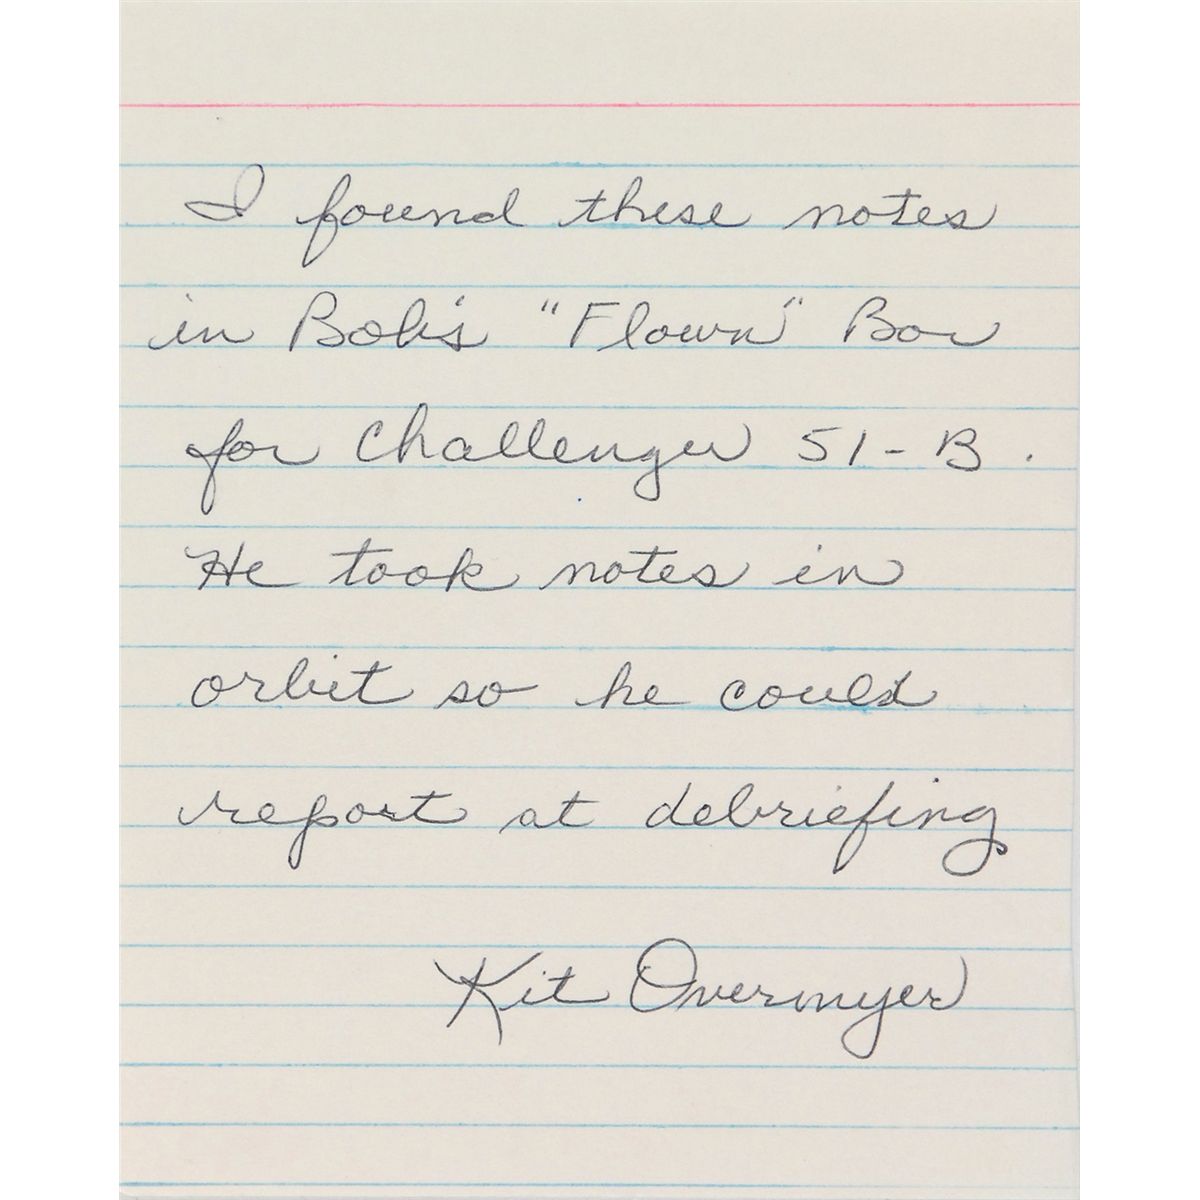 I found these notes
in Bob's "Flown" Box
for Challenger 51-B.
He took notes in
orbit so he could
report at debriefing
Kit Overmyer